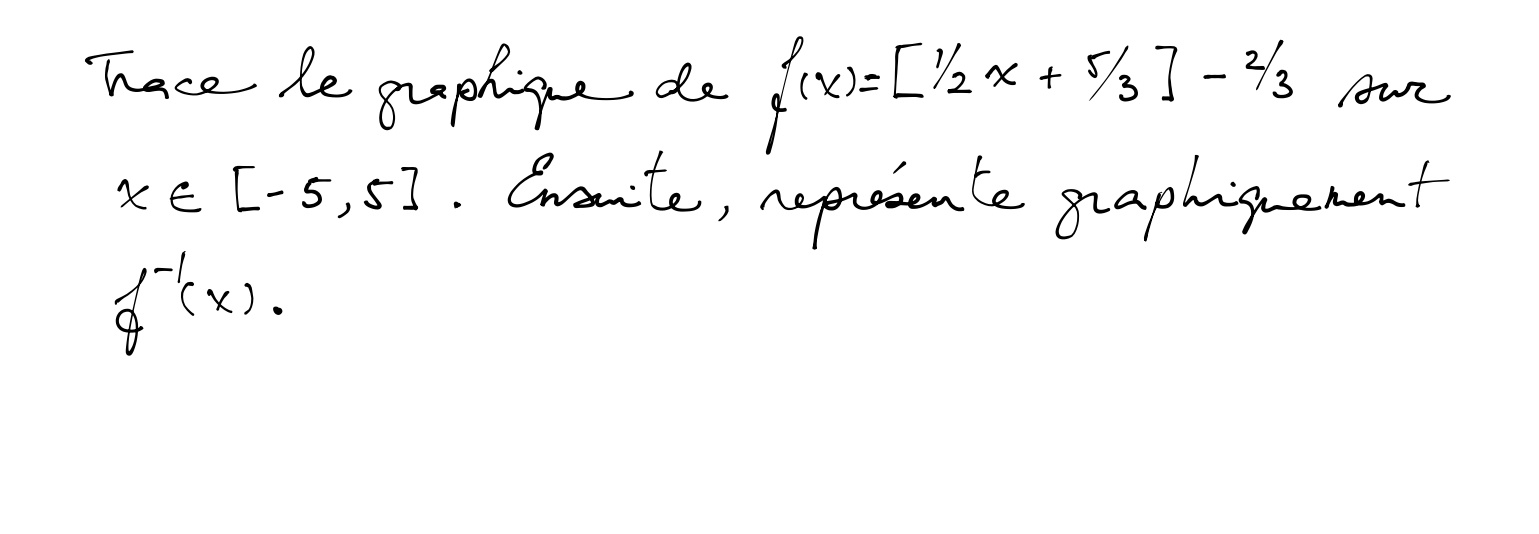 Trace le graphique de f(x)=[1/2 x + 5/3] - 2/3 sur
x ∈ [-5,5]. Ensuite, représente graphiquement
f⁻¹(x).